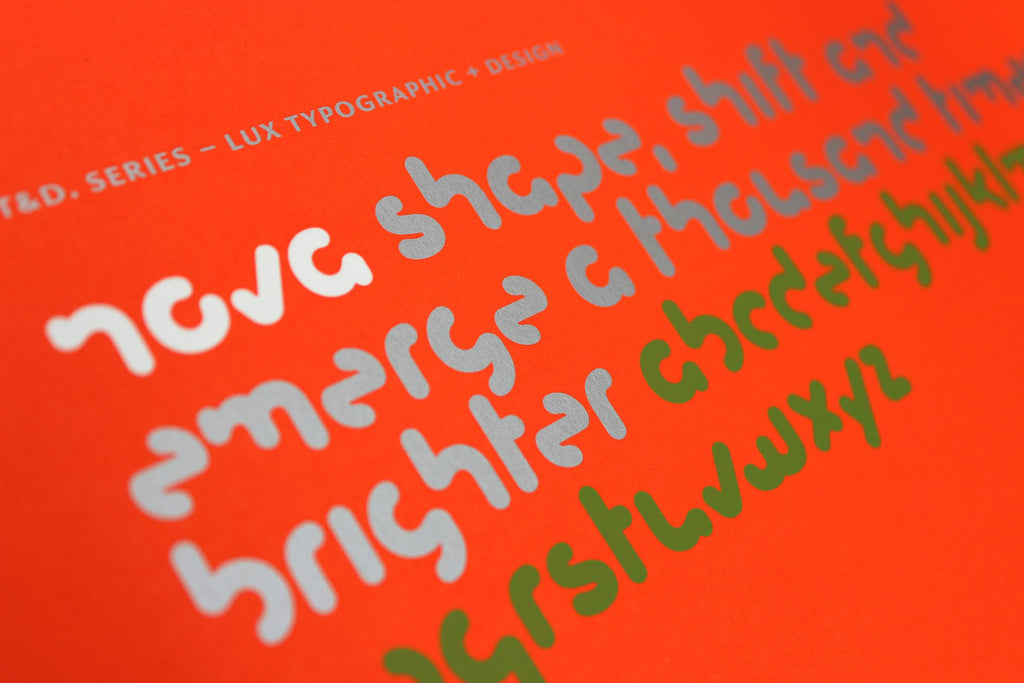 T&D. SERIES – LUX TYPOGRAPHIC + DESIGN
nova shape, shift and
emerge a thousand time
brighter abcdefghijkl
pqrstuvwxyz